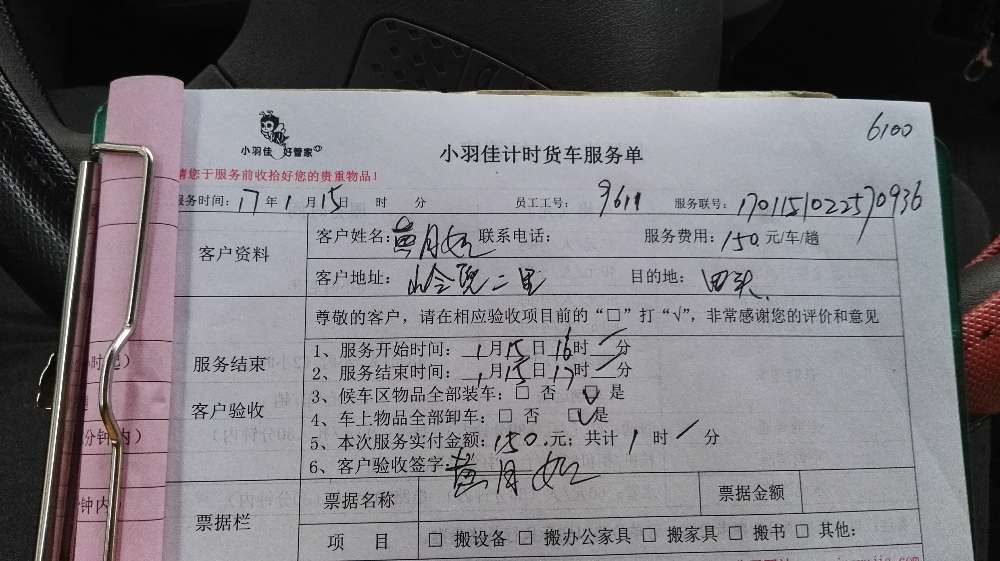 6100
小羽佳 好管家
小羽佳计时货车服务单
请您于服务前收拾好您的贵重物品!
服务时间: 17年1月15日 时 分 员工工号: 9611 服务联号: 1701151022570936
客户资料
客户姓名: 黄月 联系电话: 服务费用: 150元/车/趟
客户地址: 二里 目的地:
尊敬的客户,请在相应验收项目前的“□”打“√”,非常感谢您的评价和意见
服务结束
客户验收
1、服务开始时间: 1月15日16时 分
2、服务结束时间: 1月15日17时 分
3、候车区物品全部装车: □ 否 ☑ 是
4、车上物品全部卸车: □ 否 ☑ 是
5、本次服务实付金额: 150元; 共计 1 时 分
6、客户验收签字: 黄月
票据栏
票据名称 票据金额
项 目 □ 搬设备 □ 搬办公家具 □ 搬家具 □ 搬书 □ 其他:
分钟内)
钟内